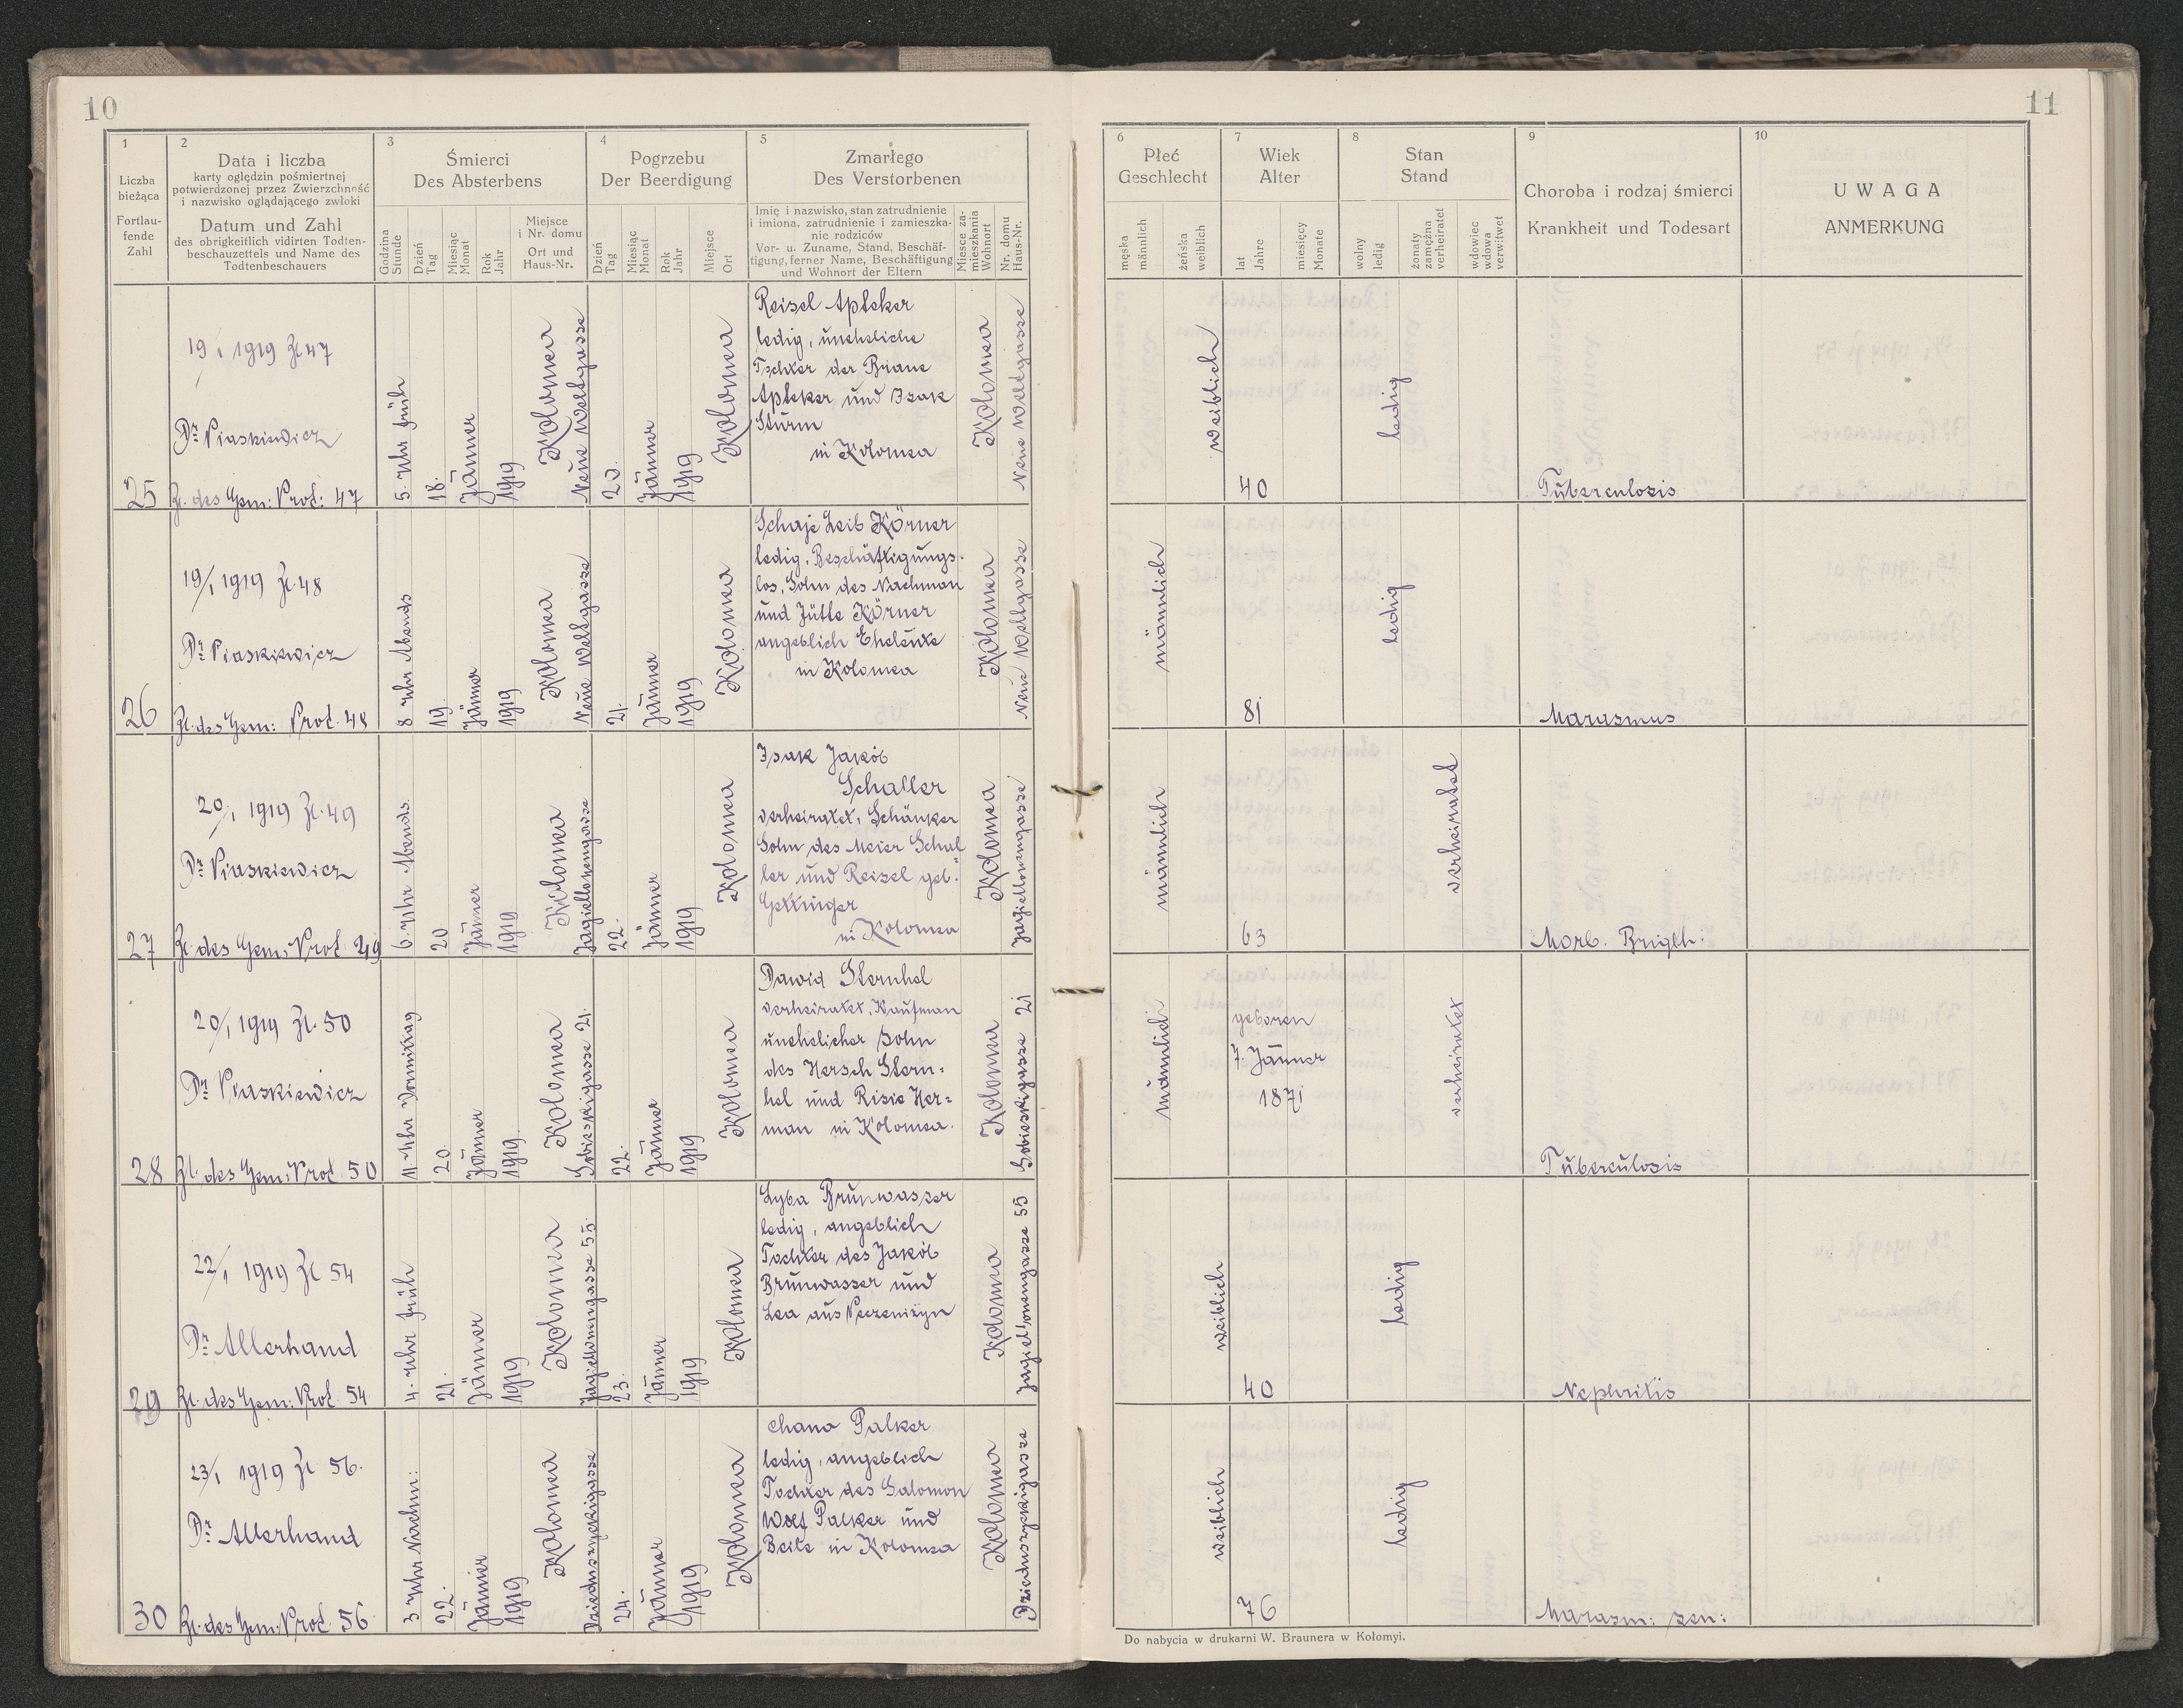 10
11
1
Liczba
bieżąca
Fortlau-
fende
Zahl
2
Data i liczba
karty oględzin pośmiertnej
potwierdzonej przez Zwierzchność
i nazwisko oglądającego zwłoki
Datum und Zahl
des obrigkeitlich vidirten Todten-
beschauzettels und Name des
Todtenbeschauers
3
Śmierci
Des Absterbens
Godzina
Stunde
Dzień
Tag
Miesiąc
Monat
Rok
Jahr
Miejsce
i Nr. domu
Ort und
Haus-Nr.
4
Pogrzebu
Der Beerdigung
Dzień
Tag
Miesiąc
Monat
Rok
Jahr
Miejsce
Ort
5
Zmarłego
Des Verstorbenen
Imię i nazwisko, stan zatrudnienie
i imiona, zatrudnienie i zamieszka-
nie rodziców
Vor- u. Zuname, Stand, Beschäf-
tigung, ferner Name, Beschäftigung
und Wohnort der Eltern
Miesce za-
mieszkania
Wohnort
Nr. domu
Haus-Nr.
6
Płeć
Geschlecht
męska
männlich
żeńska
weiblich
7
Wiek
Alter
lat
Jahre
miesięcy
Monate
8
Stan
Stand
wolny
ledig
żonaty
zamężna
verheiratet
wdowiec
wdowa
verwitwet
9
Choroba i rodzaj śmierci
Krankheit und Todesart
10
UWAGA
ANMERKUNG
25
19/1 1919 Zl 47
Dr Piaskiewicz
Zl. des Gem: Prot: 47
5. Uhr früh
18.
Jänner
1919
Kolomea
Neue Weltgasse
20.
Jänner
1919
Kolomea
Reisel Apteker
ledig, uneheliche
Tochter der Briane
Apteker und Isak
Sturm
in Kolomea
Kolomea
Neue Weltgasse
weiblich
40
ledig
Tuberculosis
26
19/1 1919 Zl 48
Dr Piaskiewicz
Zl. des Gem: Prot. 48
8 Uhr Abends
19.
Jänner
1919
Kolomea
Neue Weltgasse
21.
Jänner
1919
Kolomea
Schaje Leib Körner
ledig, Beschäftigungs-
los, Sohn des Nachman
und Jütte Körner
angeblich Eheleute
in Kolomea
Kolomea
Neue Weltgasse
männlich
81
ledig
Marasmus
27
20/1 1919 Zl. 49
Dr Piaskiewicz
Zl. des Gem: Prot. 49
6. Uhr Abends.
20
Jänner
1919
Kolomea
Jagiellonengasse
22.
Jänner
1919
Kolomea
Isak Jakób
Schaller
verheiratet, Schänker
Sohn des Meier Schal=
ler und Reisel geb.
Gettinger
in Kolomea
Kolomea
Jagiellonengasse
männlich
63
verheiratet
Morb. Brigth:
28
20/1 1919 Zl. 50
Dr Piaskiewicz
Zl. des Gem: Prot. 50
11 Uhr Vormittag
20.
Jänner
1919.
Kolomea
Sobieskigasse 21.
22.
Jänner
1919
Kolomea
Dawid Sternhel
verheiratet, Kaufman
unehelicher Sohn
des Hersch Stern=
hel und Risie Her=
man in Kolomea.
Kolomea
Sobieskigasse 21
männlich
geboren
7. Jänner
1871
verheiratet
Tuberculosis
29
22/1 1919 Zl 54
Dr Allerhand
Zl. des Gem: Prot. 54
4. Uhr früh
21.
Jänner
1919
Kolomea
Jagiellonengasse 55.
23.
Jänner
1919
Kolomea
Lyba Brunwasser
ledig, angeblich
Tochter des Jakób
Brunwasser und
Lea aus Peczenizyn
Kolomea
Jagiellonengasse 55
weiblich
40
ledig
Nephritis
30
23/1 1919 Zl 56.
Dr Allerhand
Zl. des Gem: Prot. 56
3 Uhr Nachm:
22.
Jänner
1919
Kolomea
Dzieduszyckigasse
24.
Jänner
1919
Kolomea
Chana Palker
ledig, angeblich
Tochter des Salomon
Wolf Palker und
Beile in Kolomea
Kolomea
Dzieduszyckigasse
weiblich
76
ledig
Marasm: sen:
Do nabycia w drukarni W. Braunera w Kołomyi.